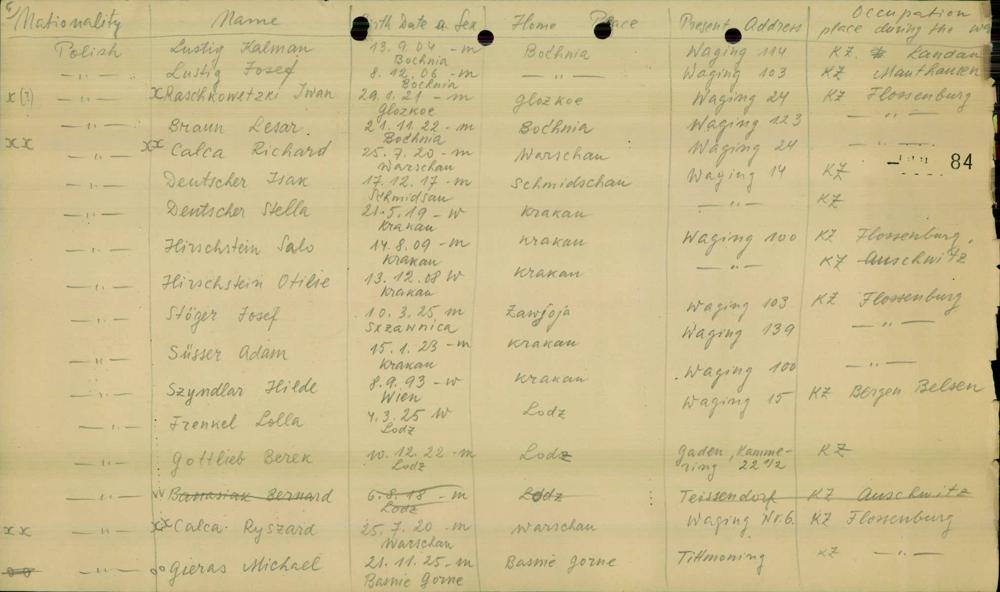 Nationality Name Birth Date u. Sex Home Place Present Address Occupation place during the war
Polish Lustig Kalman 13.9.04 - m Bochnia Bochnia Waging 114 KZ Landau
-"- Lustig Josef 8.12.06 - m Bochnia -"- Waging 103 KZ Mauthausen
x(?) -"- x Raschkowetzki Iwan 29.1.21 - m Glozkoe Glozkoe Waging 24 KZ Flossenburg
-"- Braun Cesar 21.11.22 - m Bochnia Bochnia Waging 123 -"-
xx -"- xx Calca Richard 25.7.20 - m Warschau Warschau Waging 24 -"-
84
-"- Deutscher Isak 17.12.17 - m Schmidsau Schmidschau Waging 14 KZ
-"- Deutscher Stella 21.5.19 - w Krakau Krakau -"- KZ
-"- Hirschstein Salo 14.8.09 - m Krakau Krakau Waging 100 KZ Flossenburg
-"- Hirschstein Otilie 13.12.08 w Krakau Krakau -"- KZ Auschwitz
-"- Stöger Josef 10.3.25 m Szzawnica Zawjoja Waging 103 KZ Flossenburg
-"- Süsser Adam 15.1.23 - m Krakau Krakau Waging 139 -"-
-"- Szyndlar Hilde 8.9.93 - w Wien Krakau Waging 100 -"-
-"- Frenkel Lolla 4.3.25 w Lodz Lodz Waging 15 KZ Bergen Belsen
-"- Gottlieb Berek 10.12.22 - m Lodz Lodz Gaden, Kammering 22 1/2 KZ
-"- Banasiak Bernard 6.8.18 - m Lodz Lodz Teissendorf KZ Auschwitz
xx -"- xx Calca Ryszard 25.7.20 - m Warschau Warschau Waging Nr.6. KZ Flossenburg
oo -"- oo Gieras Michael 21.11.25 - m Basnie Gorne Basnie Gorne Tittmoning KZ -"-